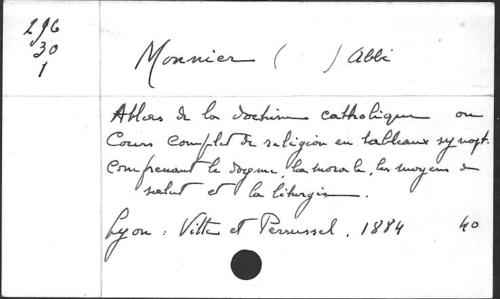 296
30
1
Monnier ( ) Abbé
Atlas de la doctrine catholique ou
Cours complet de religion en tableaux synopt.
Comprenant le dogme, la morale, les moyens de
salut et la liturgie.
Lyon : Vitte et Perrussel, 1884 40